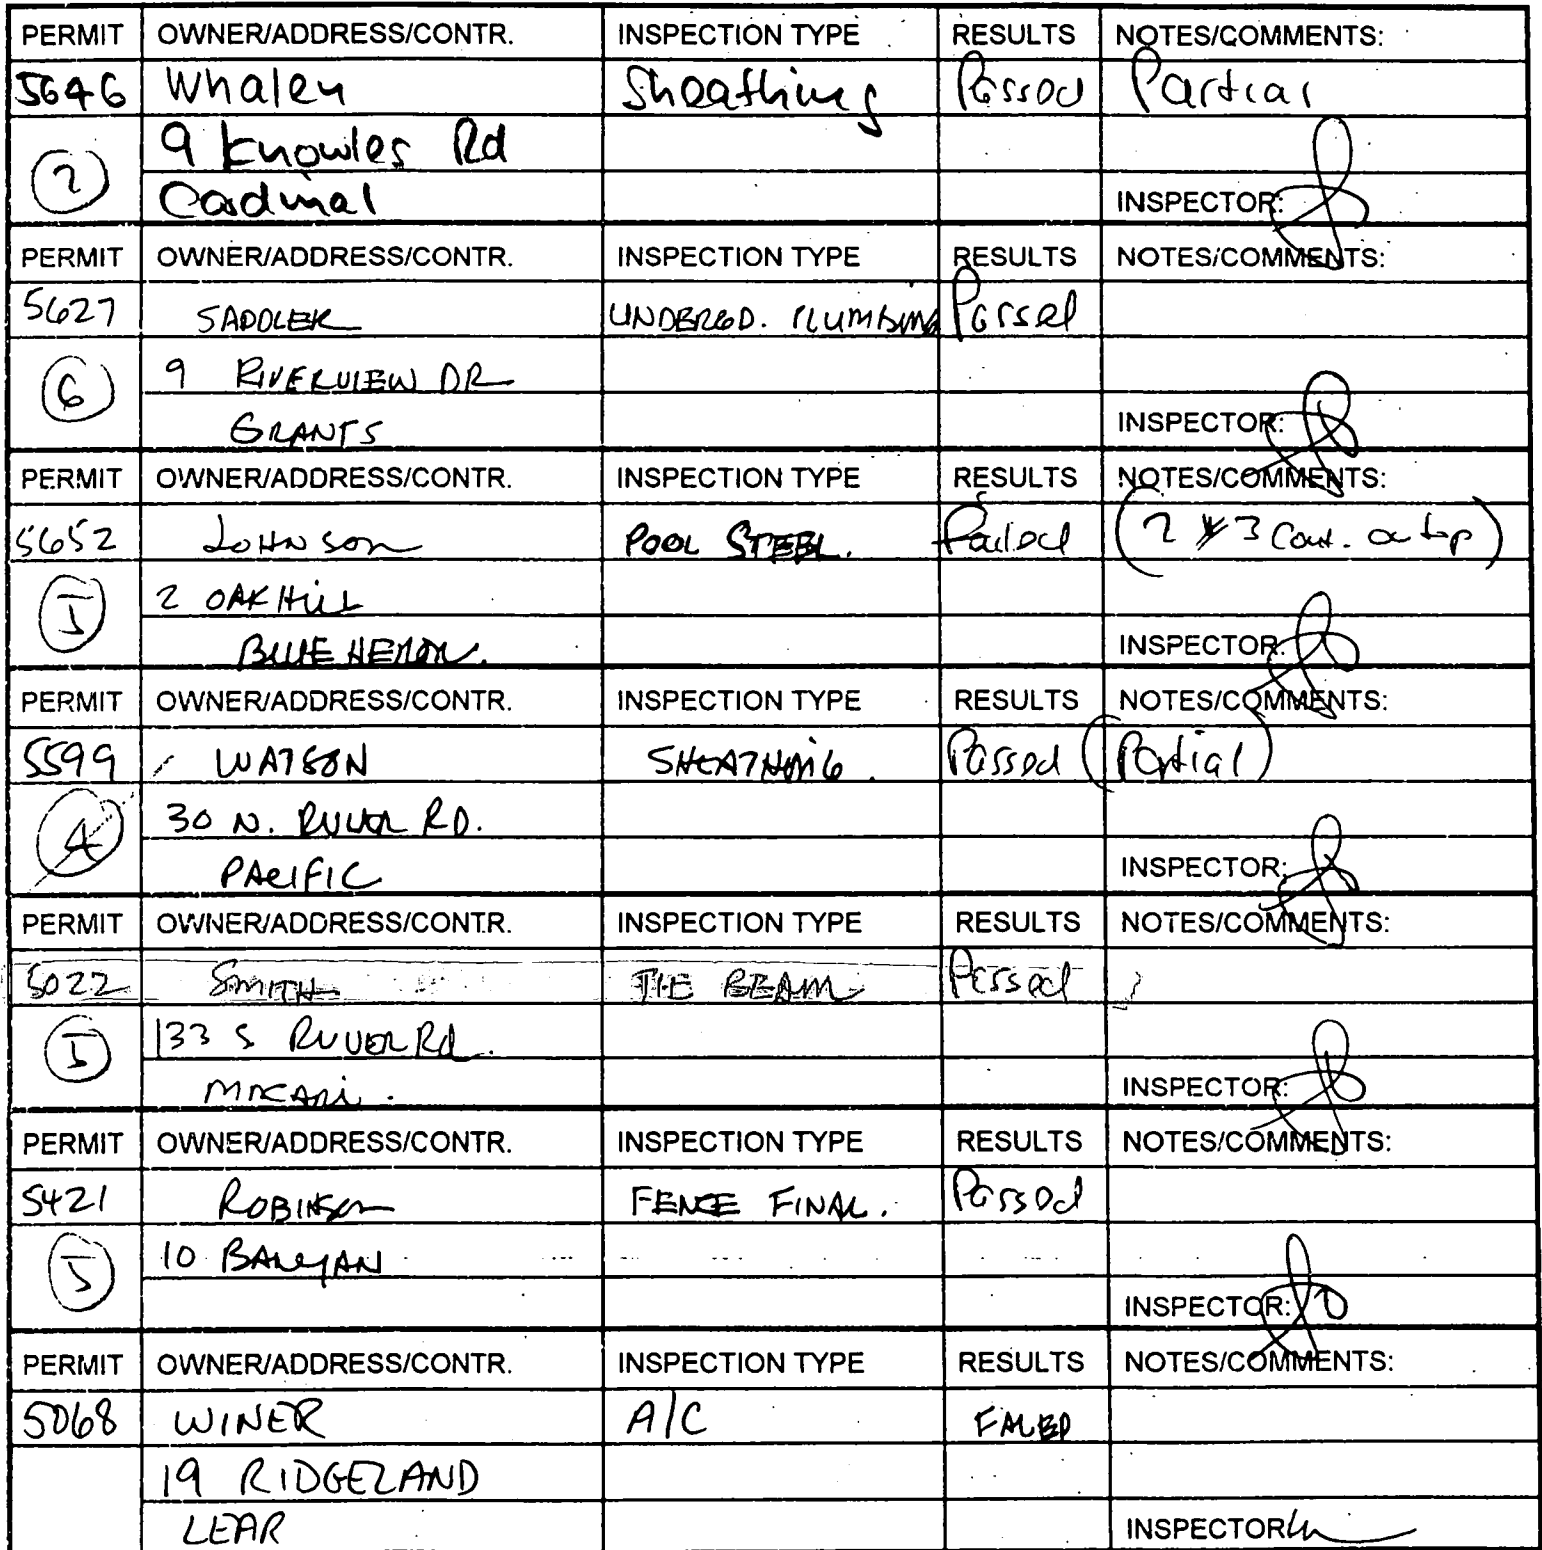 PERMIT OWNER/ADDRESS/CONTR. INSPECTION TYPE RESULTS NOTES/COMMENTS:
5646 Whalen Sheathing Passed Partial
2 9 Knowles Rd
Cardinal INSPECTOR:
PERMIT OWNER/ADDRESS/CONTR. INSPECTION TYPE RESULTS NOTES/COMMENTS:
5627 SADDLER UNDERGD. PLUMBING Passed
6 9 RIVERVIEW DR
GRANTS INSPECTOR:
PERMIT OWNER/ADDRESS/CONTR. INSPECTION TYPE RESULTS NOTES/COMMENTS:
5652 JOHNSON POOL STEEL. Failed (2 3 on top)
2 OAK HILL
BLUE HERON. INSPECTOR:
PERMIT OWNER/ADDRESS/CONTR. INSPECTION TYPE RESULTS NOTES/COMMENTS:
5599 WATSON SHEATHING. Passed (Partial)
4 30 N. RIVER RD.
PACIFIC INSPECTOR:
PERMIT OWNER/ADDRESS/CONTR. INSPECTION TYPE RESULTS NOTES/COMMENTS:
5022 SMITH TIE BEAM Passed
133 S RIVER Rd.
INSPECTOR:
PERMIT OWNER/ADDRESS/CONTR. INSPECTION TYPE RESULTS NOTES/COMMENTS:
5421 ROBINSON FENCE FINAL. Passed
10 BANYAN
INSPECTOR:
PERMIT OWNER/ADDRESS/CONTR. INSPECTION TYPE RESULTS NOTES/COMMENTS:
5068 WINER A/C FAILED
19 RIDGELAND
LEAR INSPECTOR